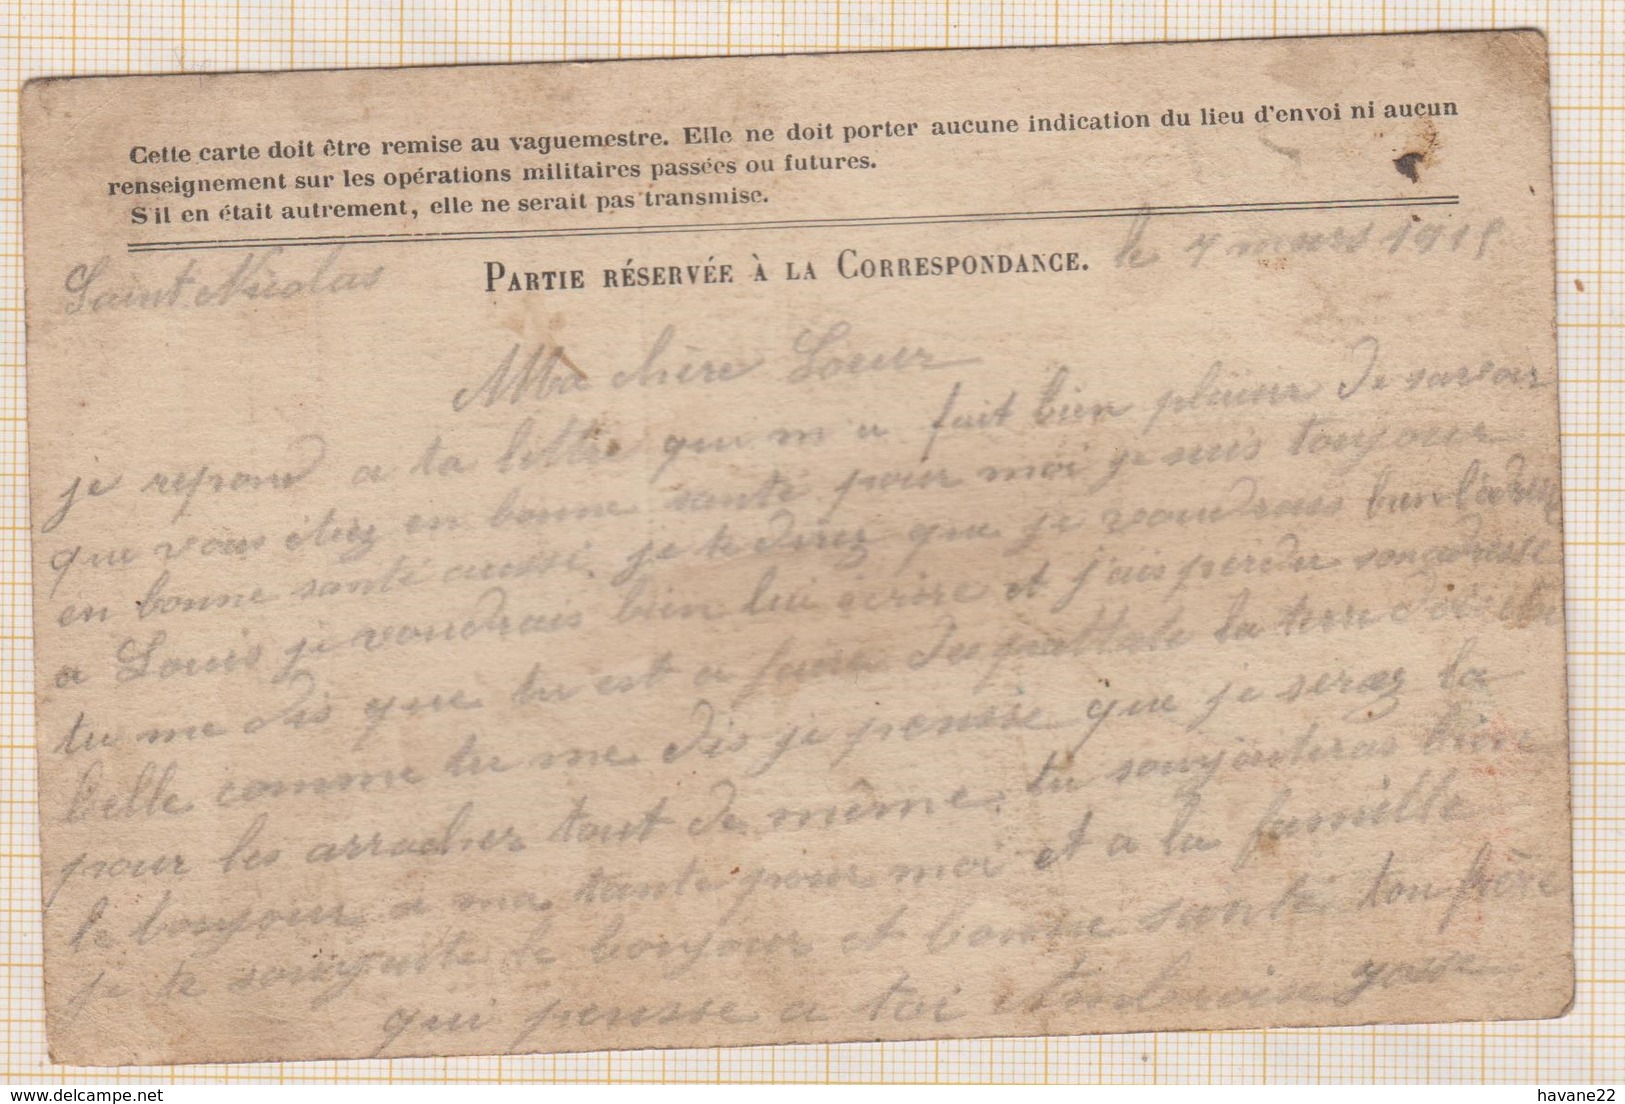 Cette carte doit être remise au vaguemestre. Elle ne doit porter aucune indication du lieu d'envoi ni aucun
renseignement sur les opérations militaires passées ou futures.
S'il en était autrement, elle ne serait pas transmise.
PARTIE RÉSERVÉE À LA CORRESPONDANCE.
Saint Nicolas le 7 mars 1915
Ma chère Soeur
je repond a ta lettre qui m a fait bien plaisir de savoir
que vous etiez en bonne santé pour moi je suis toujour
en bonne santé aussi je te direz que je voudrais bien l'adresse
a Louis je voudrais bien lui écrire et j'ais perdu son adresse
tu me dis que tu est a faire du la terre doit etre
belle comme tu me dis je pensse que je serez la
pour les arracher tout de même tu souyouteras bien
le bonjour a ma tante pour moi et a la famille
je te souyoute le bonjour et bonne santé ton frère
qui pensse a toi Ambroise
havane22